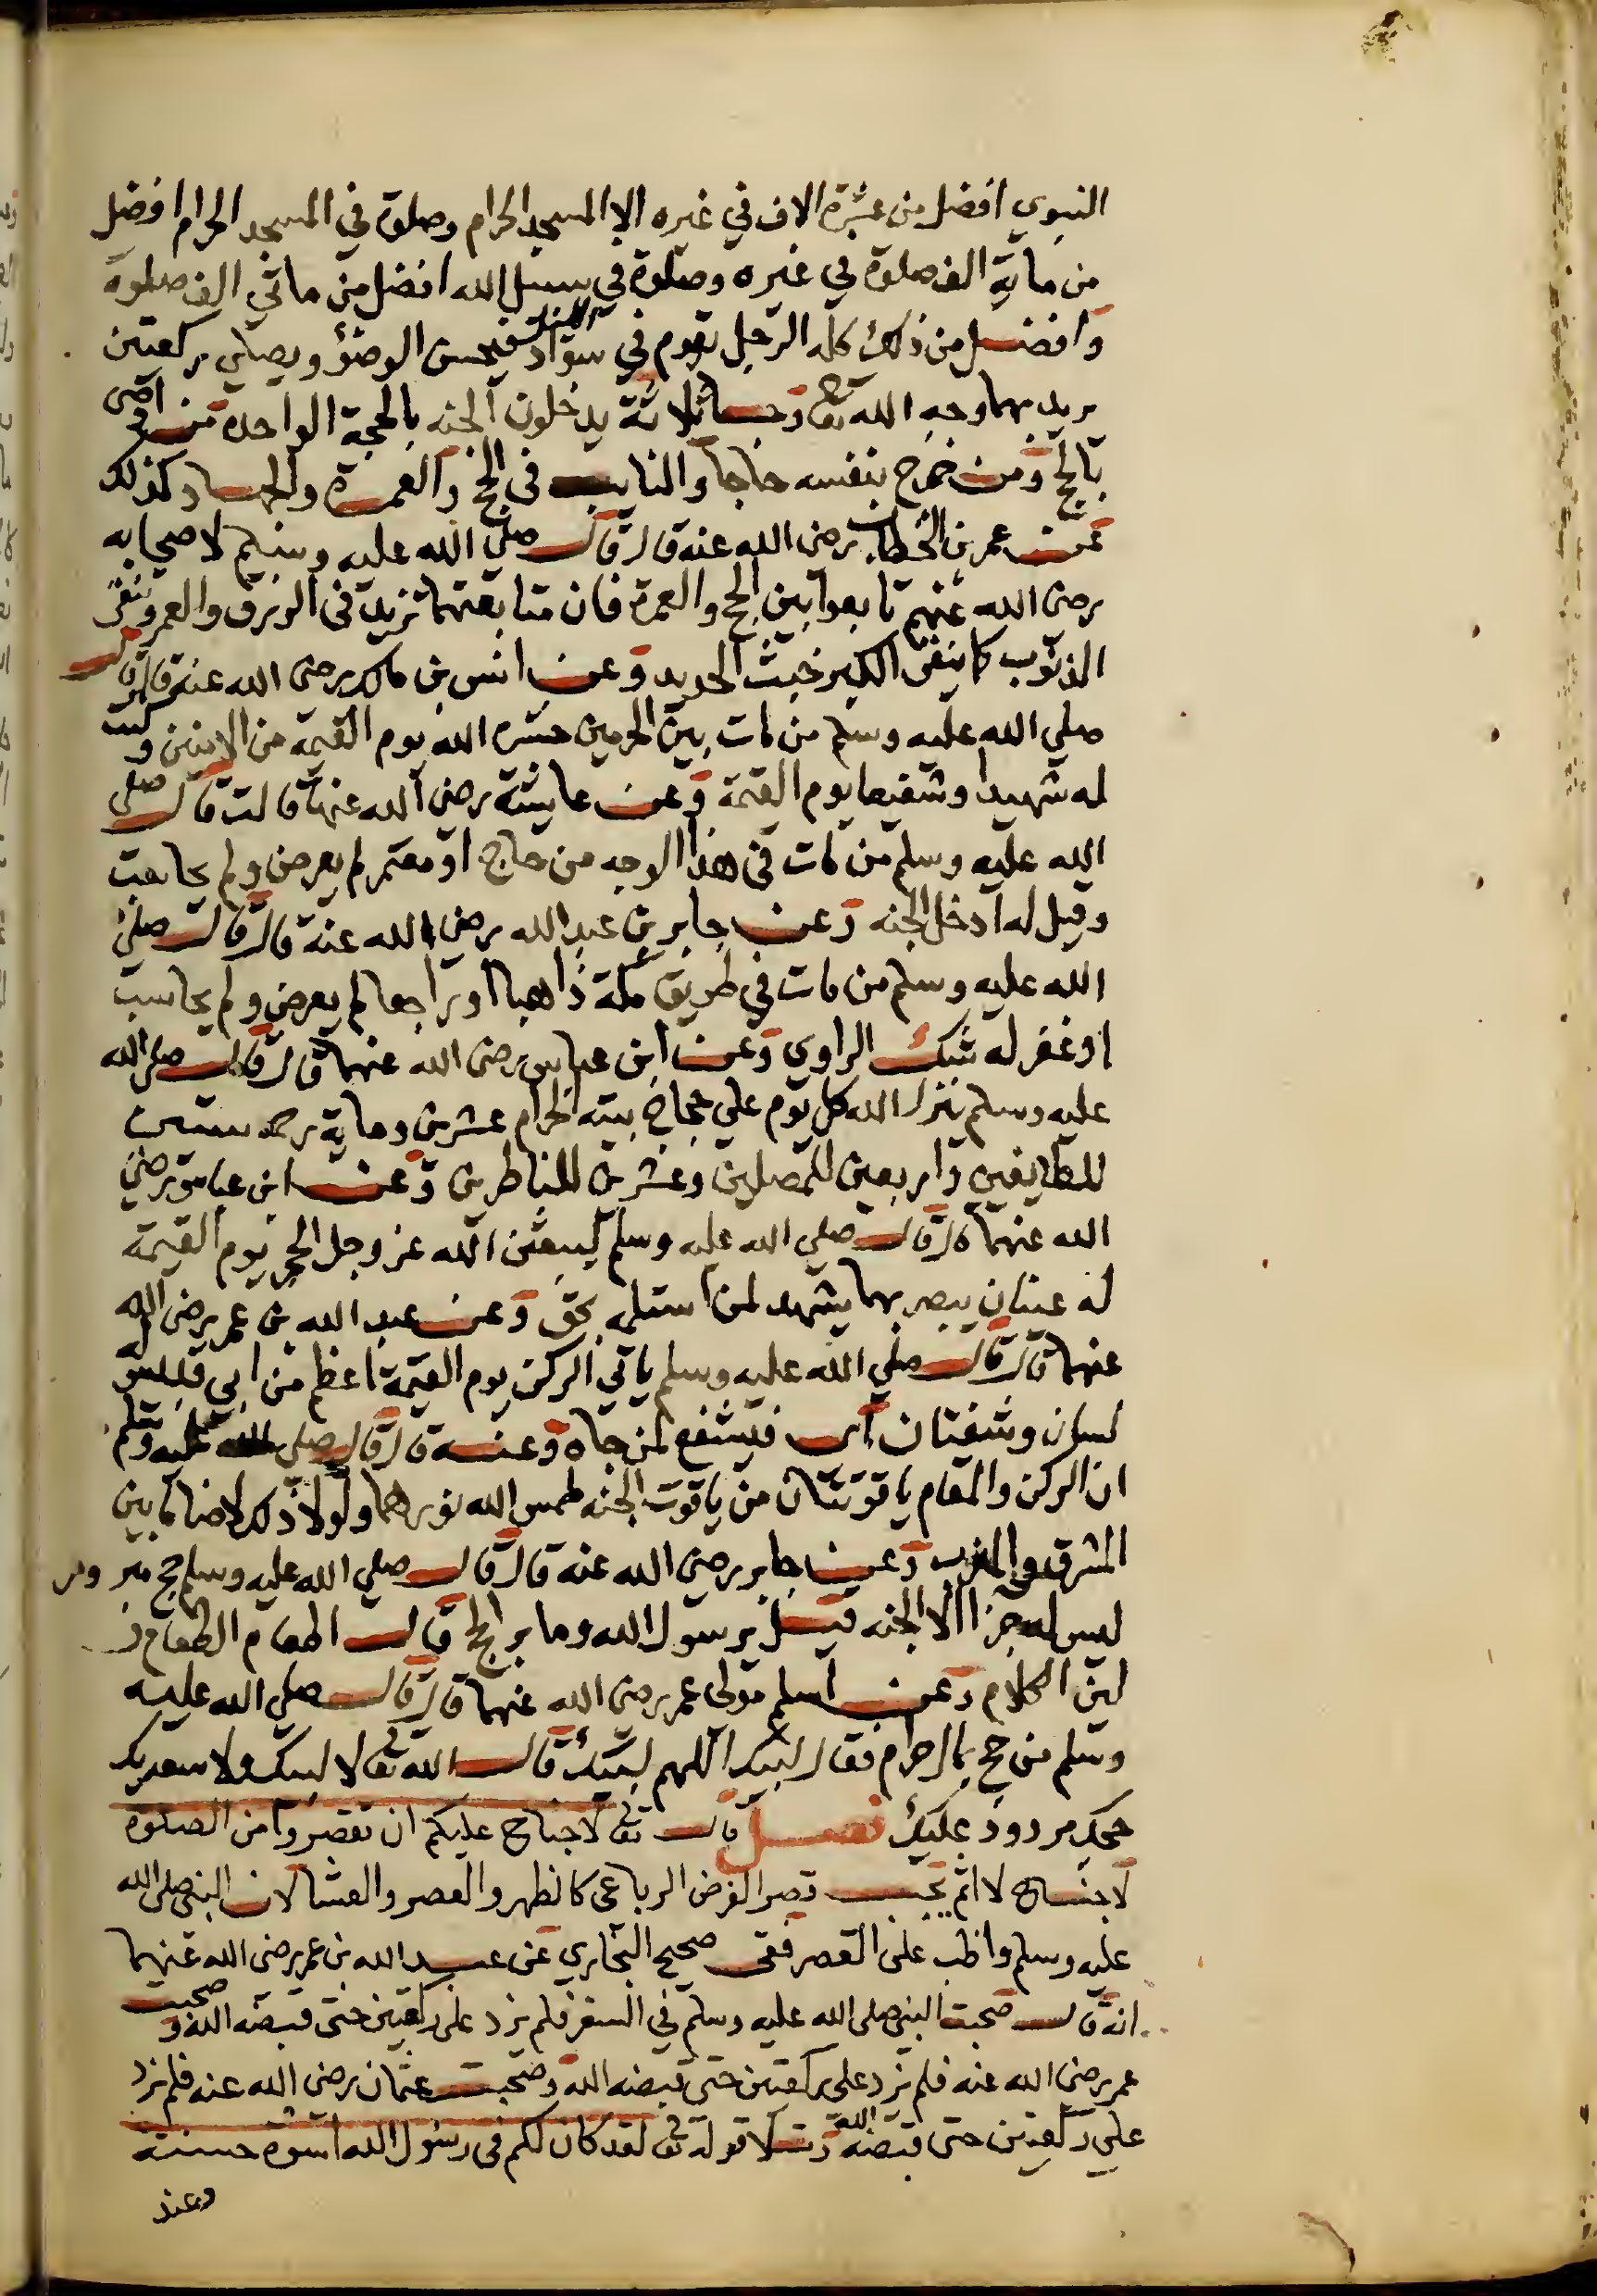 النبوي افضل من عشرة الاف في غيره الا المسجد الحرام وصلوة في المسجد الحرام افضل
من ماية الف صلوة في غيره وصلوة في سبيل الله افضل من ماتي الف صلوة
وافضل من ذلك كله الرجل يقوم في سواد الليل فيحسن الوضؤ ويصلي ركعتين
يريد بهما وجه الله تعالى وجا ثلاثة يدخلون الجنه بالحجة الواحدة من اوصى
بالحج ومن خرج بنفسه حاجا والنايب في الحج والعمرة والجهاد كذلك
عن عمر بن الخطاب رضى الله عنه قال قال صلى الله عليه وسلم لاصحابه
رضى الله عنهم تابعوا بين الحج والعمرة فان متابعتهما تزيد في الرزق والعمر وتنفى
الذنوب كما ينفى الكير خبث الحديد وعن انس بن مالك رضى الله عنه قال قال
صلي الله عليه وسلم من مات بين الحرمين حشره الله يوم القيمة من الامنين وكنت
له شهيدا وشفيعا يوم القيمة وعن عايشة رضى الله عنها قالت قال صلى
الله عليه وسلم من مات في هذا الوجه من حاج او معتمر لم يعرض ولم يحاسب
وقيل له ادخل الجنه وعن جابر بن عبد الله رضى الله عنه قال قال صلى
الله عليه وسلم من مات في طريق مكة ذاهبا او راجعا لم يعرض ولم يحاسب
او غفر له شك الراوي وعن ابن عباس رضى الله عنهما قال قال صلى الله
عليه وسلم ينزل الله كل يوم على حجاج بيته الحرام عشرين وماية رحمه ستين
للطايفين واربعين للمصلين وعشرين للناظرين وعن ابن عباس رضى
الله عنهما قال قال صلي الله عليه وسلم ليبعثن الله عز وجل الحجر يوم القيمة
له عينان يبصر بهما يشهد لمن استلمه بحق وعن عبد الله بن عمر رضى الله
عنهما قال قال صلي الله عليه وسلم ياتي الركن يوم القيمة اعظم من ابي قبيس له
لسان وشفتان اى فيشفع لمن جاه وعنه قال قال صلى الله عليه وسلم
ان الركن والمقام ياقوتتان من ياقوت الجنه طمس الله نورهما ولولا ذلك لاضا ما بين
المشرق والمغرب وعن جابر رضى الله عنه قال قال صلي الله عليه وسلم حج مبرور
ليس له جزا الا الجنه قيل يرسول الله وما بر الحج قال اطعام الطعام و
لين الكلام وعن اسلم مولى عمر رضى الله عنهما قال قال صلى الله عليه
وسلم من حج بمال حرام فقال لبيك اللهم لبيك قال الله تعالى لا لبيك ولا سعديك
حجك مردود عليك فصل قال تعالى لا جناح عليكم ان تقصروا من الصلوة
لا جناح لا اثم يجب قصر الفرض الرباعى كالظهر والعصر والعشا لان النبى صلى الله
عليه وسلم واظب على القصر ففى صحيح البخاري عن عبد الله بن عمر رضى الله عنهما
انه قال صحبت النبى صلى الله عليه وسلم في السفر فلم يزد على ركعتين حتى قبضه الله وصحبت
عمر رضى الله عنه فلم يزد على ركعتين حتى قبضه الله وصحبت عثمان رضى الله عنه فلم يزد
على ركعتين حتى قبضه الله وتلا قوله تعالى لقد كان لكم في رسول الله اسوة حسنة
وعند